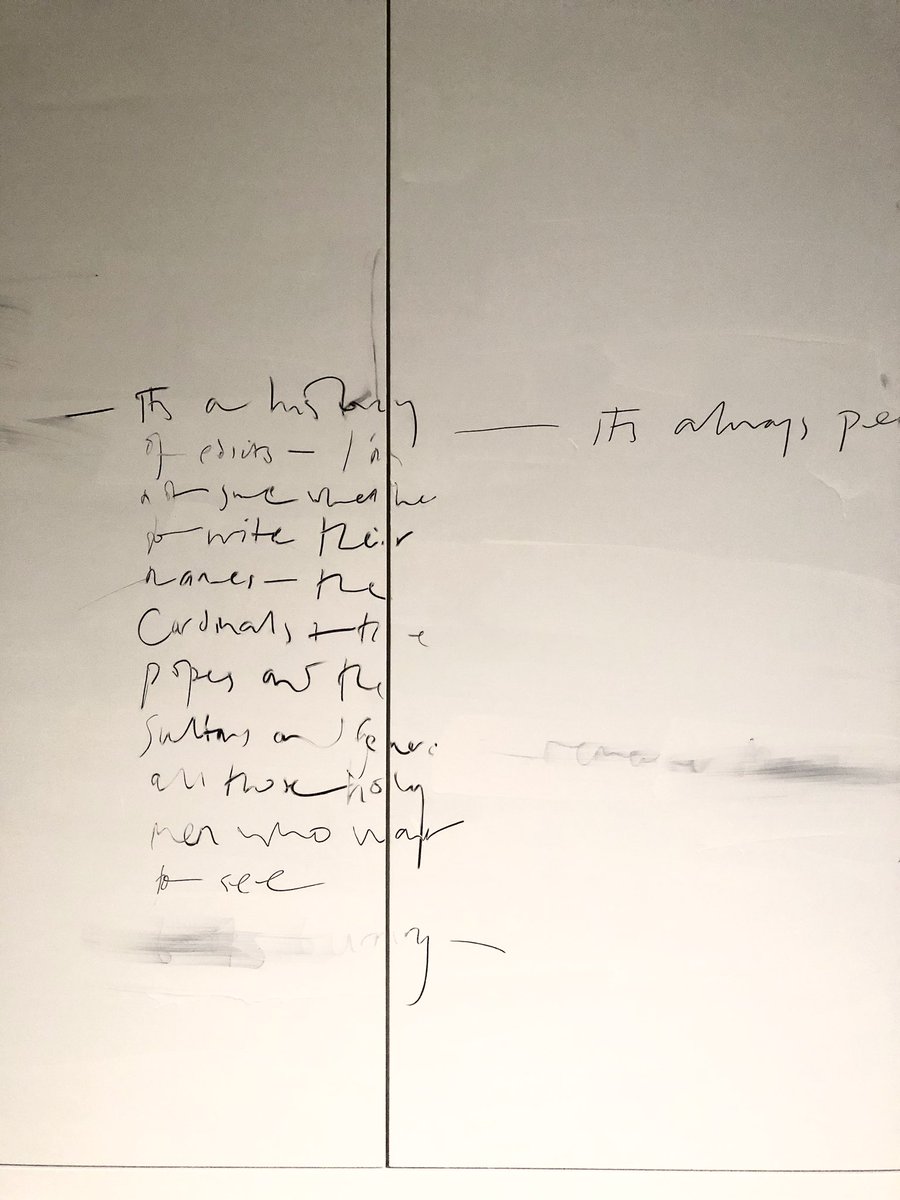 — It's a history
of edicts — I'm
not sure whether
to write their
names — the
Cardinals + the
popes and the
Sultans and
all those holy
men who want
to see
— It's always